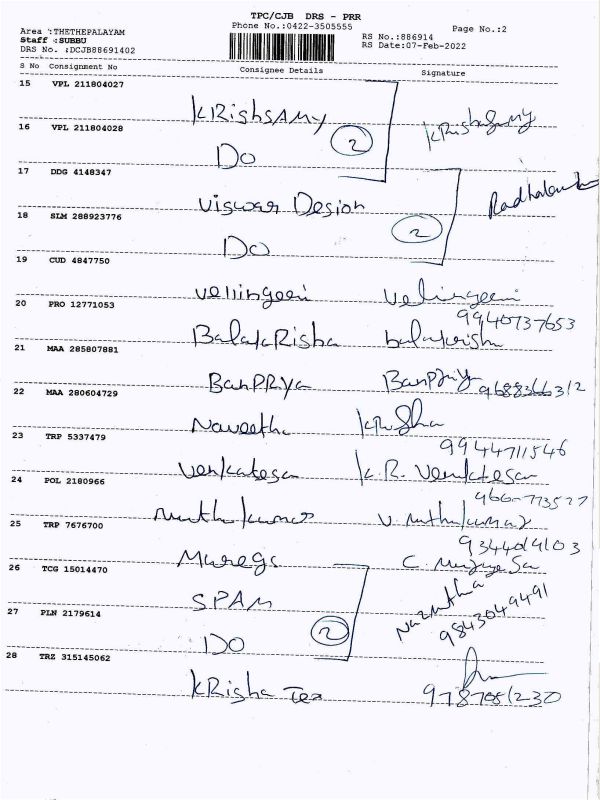 TPC/CJB DRS - PRR
Phone No.:0422-3505555
Page No.:2
Area :THETHEPALAYAM
Staff :SUBBU
DRS No. :DCJB88691402
RS No.:886914
RS Date:07-Feb-2022
S No Consignment No Consignee Details Signature
15 VPL 211804027
KRishsAMy KRishsAMy
16 VPL 211804028
Do 2
17 DDG 4148347
Viswar Design
18 SLM 288923776
Do 2
19 CUD 4847750
vellingeeri Velingeeri
9940737653
20 PRO 12771053
BalakRisha balakrish
21 MAA 285807881
BanPRiya BanPriy
22 MAA 280604729
Naveetha
9944711546
23 TRP 5337479
Venkatesa K.R. Venkatesan
24 POL 2180966
Muthukumar V. Muthukumar
25 TRP 7676700
Muregs
26 TCG 15014470
SPAM
9843049491
27 PLN 2179614
Do 2
28 TRZ 315145062
KRisha Tex